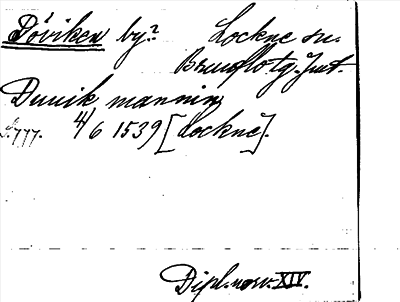 Döviken by? Lockne sn.
Brunflo tg. Jmt.
Duuik mannin
S. 777. 4/6 1539 [Lockne].
Dipl. norv. XIV.